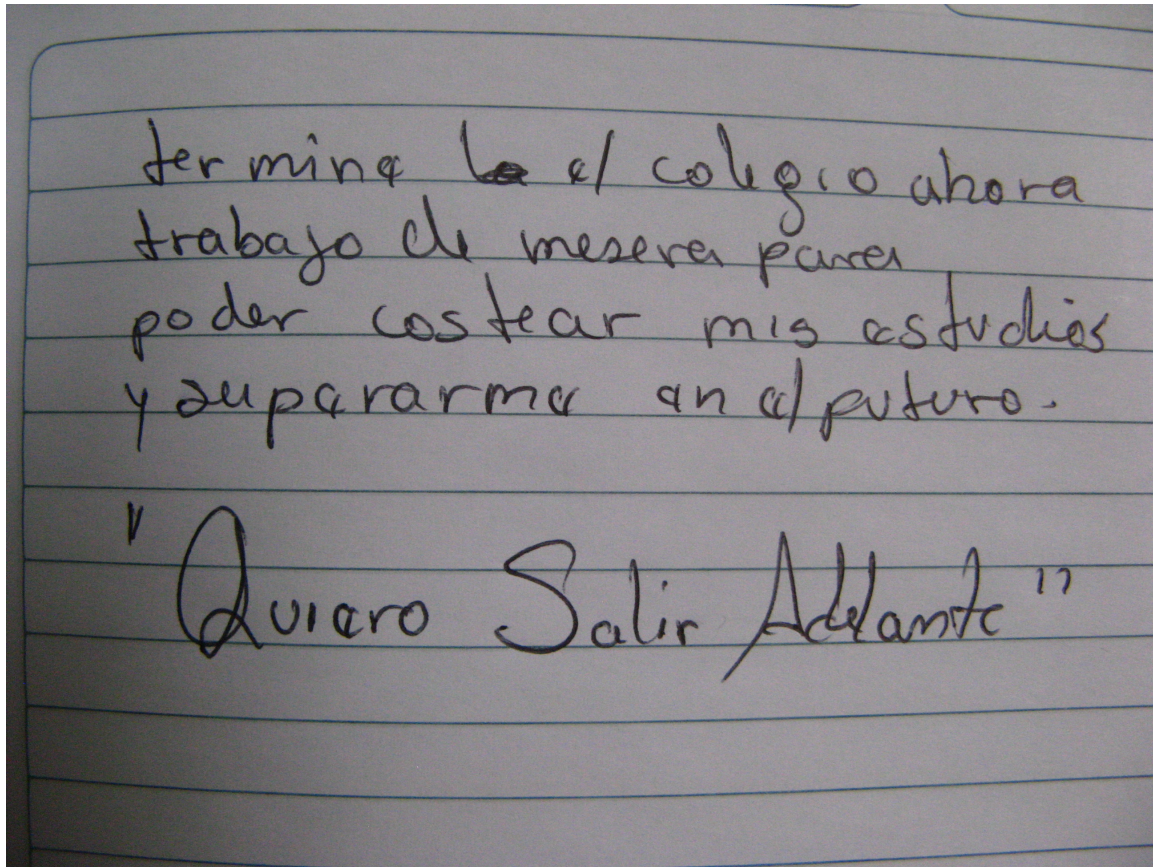 termine el colegio ahora
trabajo de mesera para
poder costear mis estudios
y superarme en el futuro.
"Quiero Salir Adelante"